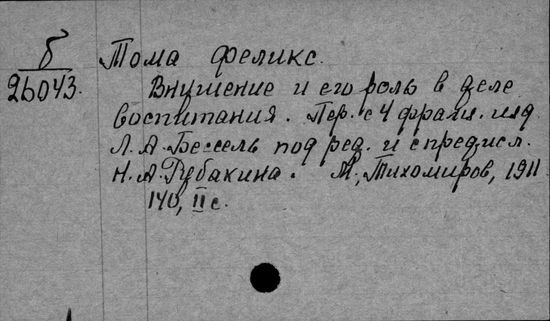 б
26043.
Тома Феликс.
Внушение и его роль в деле
воспитания. Пер. с 4 франц. изд.
Л. А. Бессель под ред. и с предисл.
Н. А. Рубакина. М., Тихомиров, 1911
140, II с.